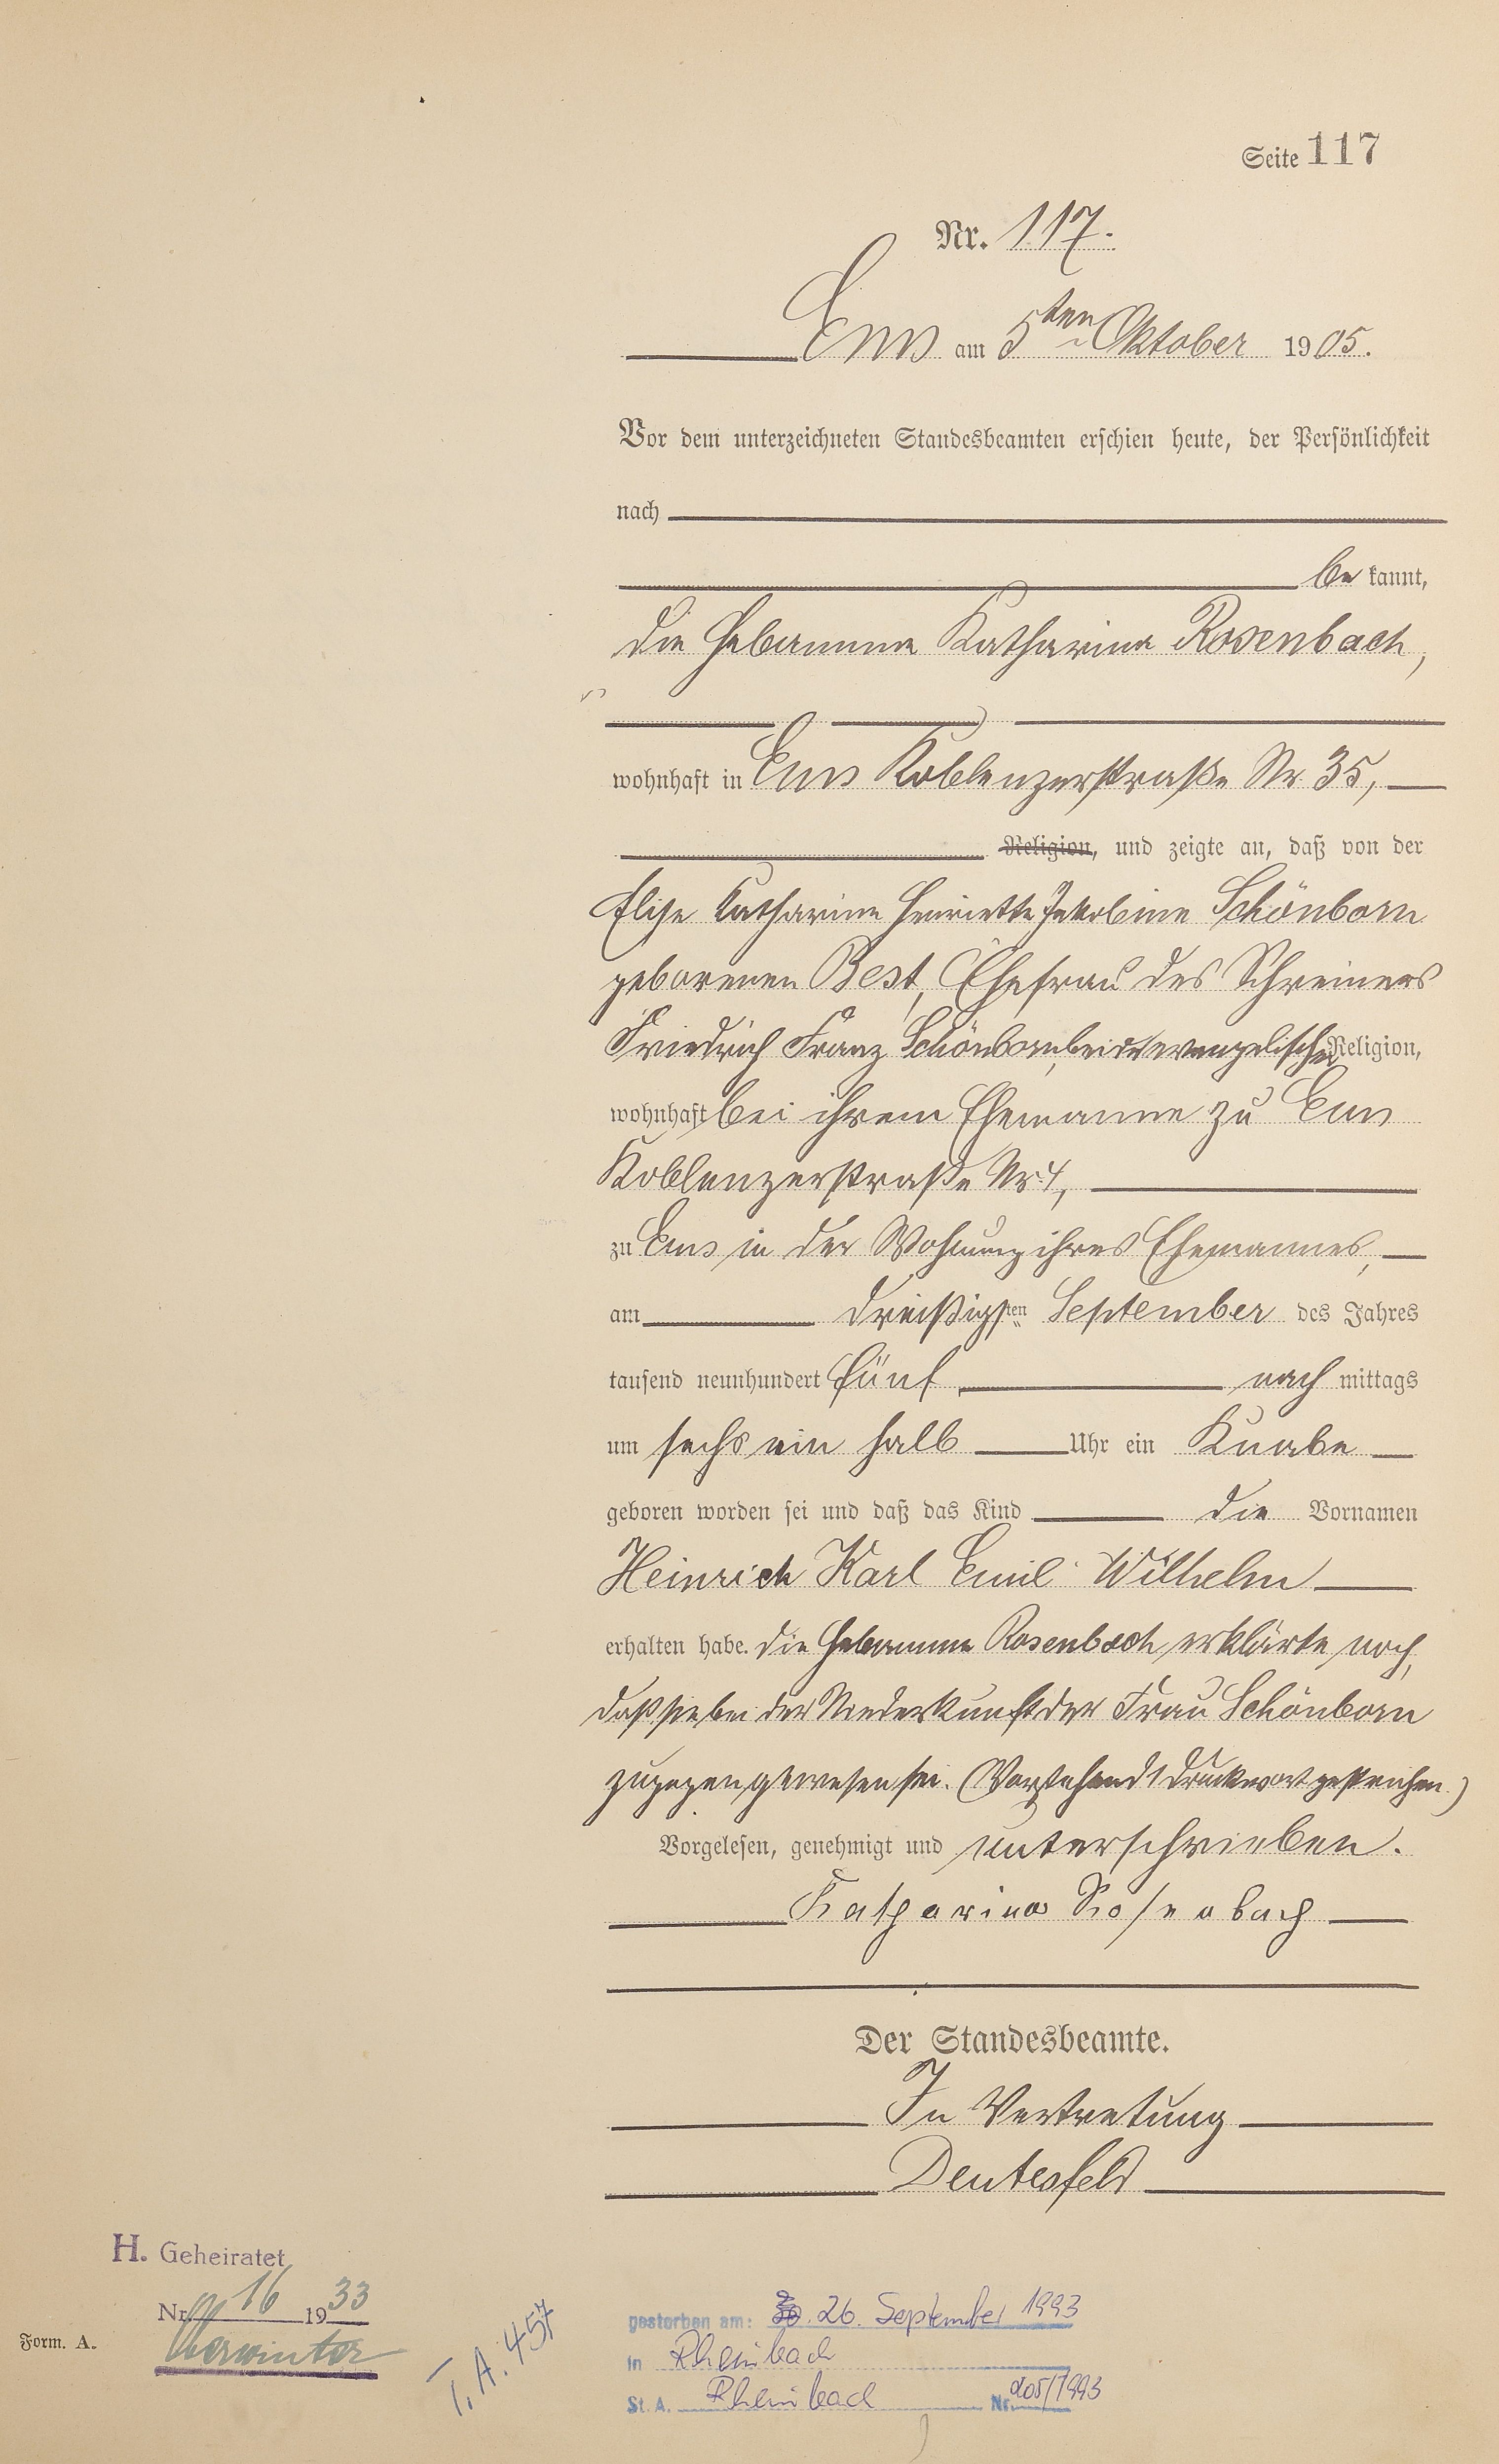 Seite 117
Nr. 117.
Ems am 5ten Oktober 1905.
Vor dem unterzeichneten Standesbeamten erschien heute, der Persönlichkeit
nach
be kannt,
die Hebamme Katharina Rosenbach,
wohnhaft in Ems Koblenzerstraße Nr 35,
Religion, und zeigte an, daß von der
Elise Katharine Henriette Jakobine Schönborn
geborenen Best, Ehefrau des Schreiners
Friedrich Franz Schönborn, beide evangelischer Religion,
wohnhaft bei ihrem Ehemanne zu Ems
Koblenzerstraße Nr 4,
zu Ems in der Wohnung ihres Ehemannes,
am dreißigsten September des Jahres
tausend neunhundert fünf nach mittags
um sechs ein halb Uhr ein Knabe
geboren worden sei und daß das Kind die Vornamen
Heinrich Karl Emil Wilhelm
erhalten habe. Die Hebamme Rosenbach erklärte noch,
daß sie bei der Niederkunft der Frau Schönborn
zugegen gewesen sei. (Vorstehend 1 Druckwort gestrichen.)
Vorgelesen, genehmigt und unterschrieben.
Katharina Rosenbach
Der Standesbeamte.
In Vertretung
Deutesfeld
H. Geheiratet
Nr. 16 1933
Oberwinter
Form. A.
T. A. 457
gestorben am: 26. September 1993
in Rheinbach
St. A. Rheinbach Nr. 205/1993